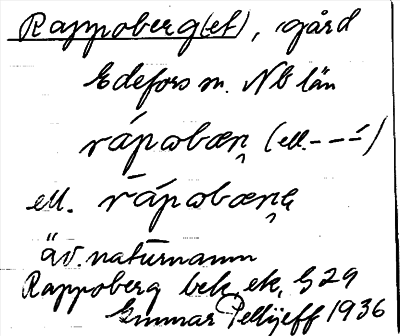 Rappoberg(et), gård
Edefors sn. Nb län
rápωbæṇ (ell. - - -́)
ell. rápωbæṇə
äv. naturnamn
Rappoberg bek. ek. G 29
Gunnar Pellijeff 1936